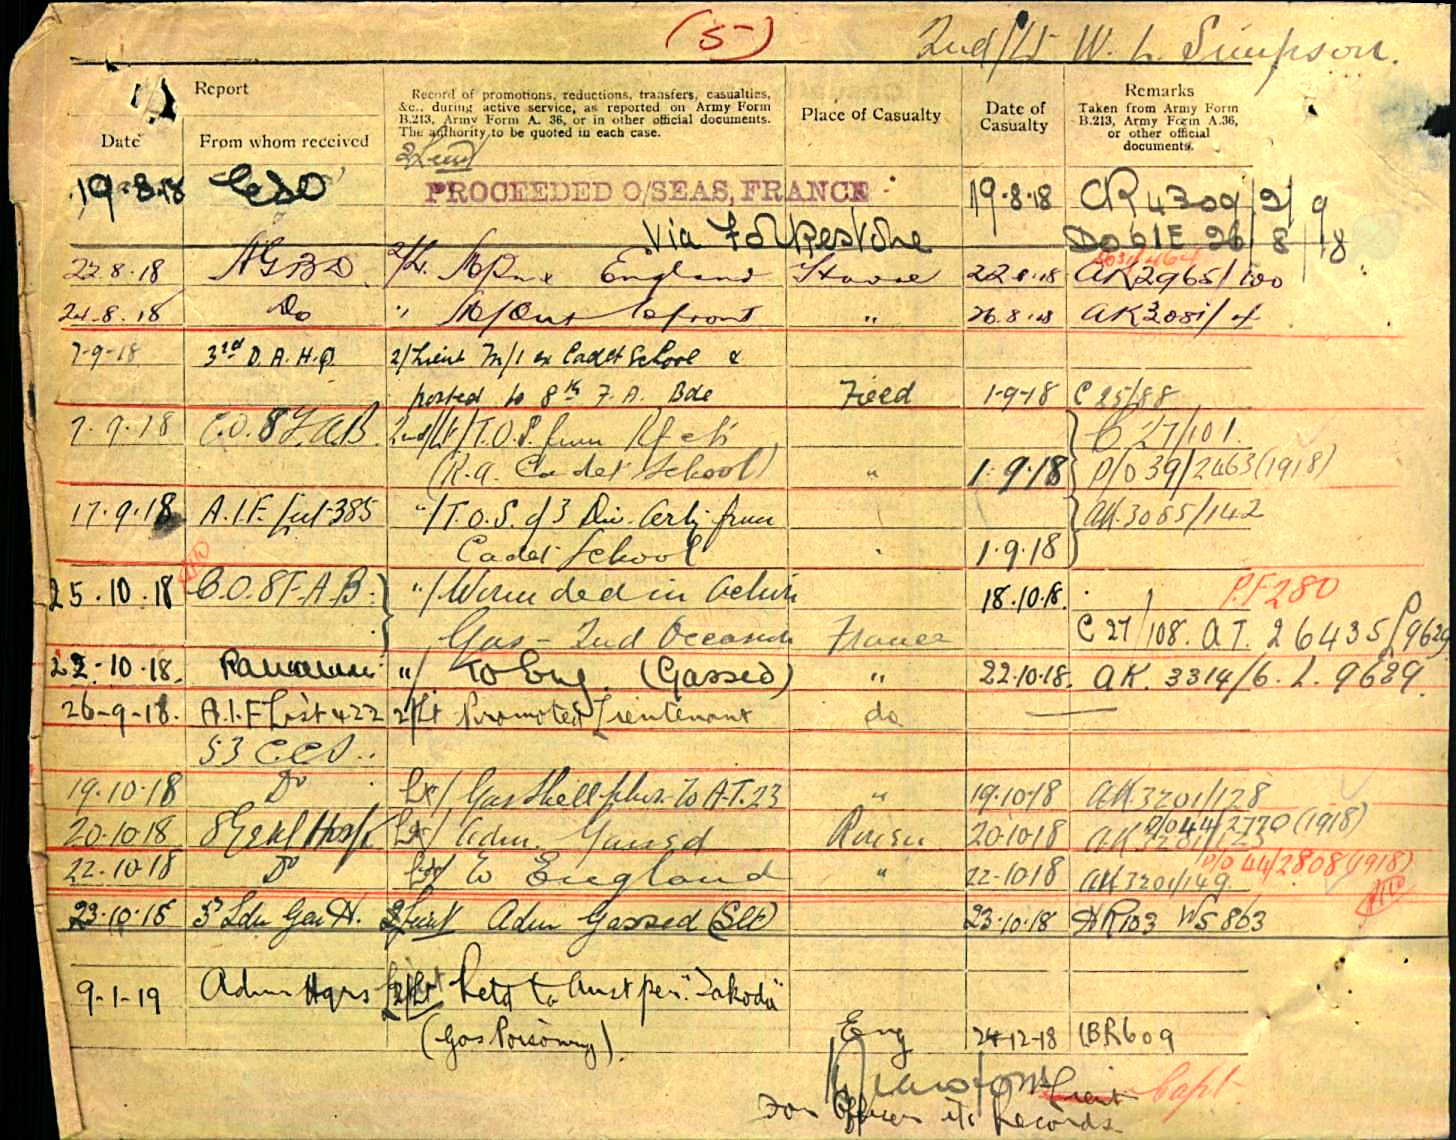 (5)
2nd/Lt W. L. Simpson.
Report
Record of promotions, reductions, transfers, casualties, &c., during active service, as reported on Army Form B.213, Army Form A. 36, or in other official documents. The authority to be quoted in each case.
Place of Casualty
Date of Casualty
Remarks
Taken from Army Form B.213, Army Form A.36, or other official documents.
Date
From whom received
2Lieut
19.8.18 PROCEEDED O/SEAS, FRANCE 19.8.18 CR4309/2/9
Via Folkestone DO61E 26/8/18
22.8.18 AGBD 2/Lt. England Havre 22.8.18 AK2965/100
24.8.18 Do " " 26.8.18 AK3081/4
7-9-18 3rd D.A.H.Q. 2/Lieut M/I ex Cadet School &
posted to 8th F.A. Bde Field 1-9-18 C 25/88
7.9.18 C.O. 8 F.A.B. 2nd/Lt/T.O.S. from C 27/101.
(R.A. Cadet School) " 1.9.18 D/O 39/2463(1918)
17.9.18 A.I.F. List 385 "/T.O.S. of 3 Div. Arty from AK.3085/142
Cadet School 1.9.18
25.10.18 C.O. 8 F.A.B. "/Wounded in Action 18.10.18. P.F 280
Gas - 2nd Occasion France C 27/108. A.T. 26435 L9629
22.10.18. "/ To Eng. (Gassed) " 22.10.18. AK. 3314/6. L. 9629
26-9-18. A.I.F List 422 2/Lt Promoted Lieutenant do
53 CCS.
19.10.18 Do Lt/ Gas Shell To A.T.23 " 19.10.18 AK.3201/128
20.10.18 8 Genl Hosp Lt/ Adm. Gassed Rouen 20.10.18 D/O 44/2770 (1918)
22.10.18 Do Lt/ to England " 22.10.18 AK 3201/149 D/O 44/2808(1918)
23.10.18 3 Ldn Gen H. Lieut Adm Gassed (Slt) 23.10.18 AR103 W5863
9-1-19 Admn Hqrs Lieut 2/Lt Retd to Aust per. "Zakoda"
(Gas Poisoning). Eng 24-12-18 (BR609
Lieut Capt.
For Officer i/c Records